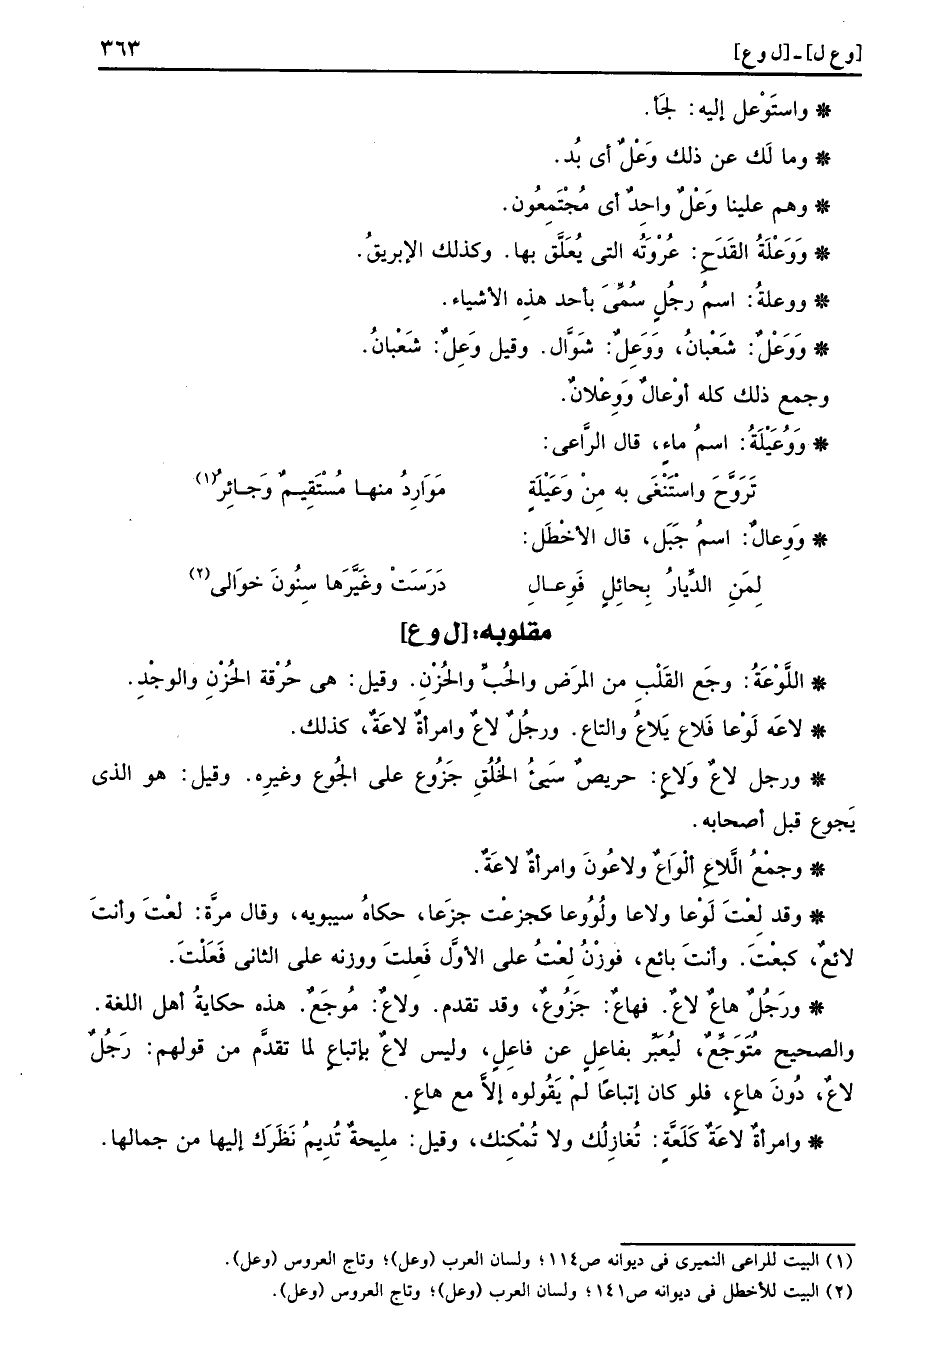 [و ع ل] ـ [ل و ع] ٣٦٣
* واستَوْعل إليه: لجَأ.
* وما لَك عن ذلك وَعْلٌ أى بُد.
* وهم علينا وَعْلٌ واحِدٌ أى مُجْتَمِعُون.
* وَوَعْلَةُ القَدَحِ: عُرْوَتُه التى يُعَلَّق بها. وكذلك الإبريقُ.
* ووعلةُ: اسمُ رجُلٍ سُمِّىَ بأحد هذِه الأشياء.
* وَوَعْلٌ: شَعْبانُ، وَوَعِلٌ: شَوَّال. وقيل وَعِلٌ: شَعْبانُ.
وجمع ذلك كله أوْعالٌ وَوِعْلانٌ.
* وَوُعَيْلَةُ: اسمُ ماءٍ، قال الرَّاعى:
تَرَوَّحَ واسْتَنْغَى به مِنْ وَعَيْلَةٍ مَوَارِدُ منهـا مُسْتَقِيـمٌ وَجـائِرُ(١)
* وَوِعالٌ: اسمُ جَبَل، قال الأخْطَل:
لِمَنِ الدِّيارُ بِحائلٍ فَوِعـالِ دَرَسَتْ وغَيَّرَها سِنُونَ خوَالى(٢)
مقلوبه: [ل و ع]
* اللَّوْعَةُ: وجَع القَلْب من المرَض والحُبِّ والحُزْنِ. وقيل: هى حُرْقة الحُزْنِ والوجْدِ.
* لاعَه لَوْعا فَلاع يَلاعُ والتاع. ورجُلٌ لاعٌ وامرأةٌ لاعَةٌ، كذلك.
* ورجل لاعٌ وَلاعٍ: حريصٌ سَيئُ الخُلُقِ جَزُوع على الجُوع وغيرِه. وقيل: هو الذى
يَجوع قبل أصحابه.
* وجمْعُ اللَّاعِ ألْوَاعٌ ولاعُونَ وامرأةٌ لاعَةٌ.
* وقد لِعْتَ لَوْعا ولاعا ولُوُوعا كجزعْت جزَعا، حكاهُ سيبويه، وقال مرَّة: لعْتَ وأنتَ
لائعٌ، كبِعْتَ. وأنتَ بائع، فوزْنُ لعْتُ على الأوَّل فَعِلتَ ووزنه على الثانى فَعَلْتَ.
* ورَجُلٌ هاعٌ لاعٌ. فهاعٌ: جَزُوعٌ، وقد تقدم. ولاعٌ: مُوجَعٌ. هذه حكايةُ أهل اللغة.
والصحيح مُتَوَجِّعٌ، ليُعَبِّر بفاعِلٍ عن فاعِلٍ، وليس لاعٌ بإتباع لما تقدَّم من قولهم: رَجُلٌ
لاعٌ، دُونَ هاعٍ، فلو كان إتباعًا لمْ يَقُولوه إلاَّ مع هاعٍ.
* وامرأةٌ لاعَةٌ كَلَعَّةٍ: تُغازِلُك ولا تُمْكِنك، وقيل: مليحةٌ تُدِيمُ نَظَرَك إليها من جمالها.
(١) البيت للراعى النميرى فى ديوانه ص١١٤؛ ولسان العرب (وعل)؛ وتاج العروس (وعل).
(٢) البيت للأخطل فى ديوانه ص١٤١؛ ولسان العرب (وعل)؛ وتاج العروس (وعل).